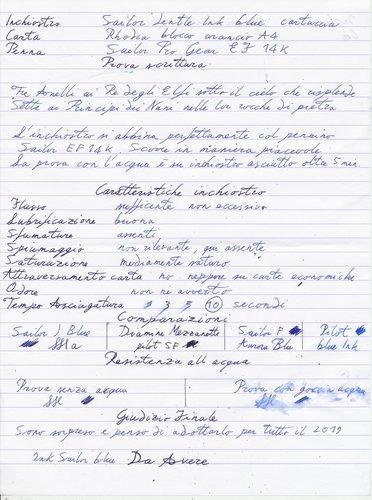 Inchiostro Sailor Jentle Ink blue cartuccia
Carta Rhodia bloco arancio A4
Penna Sailor Pro Gear EF 14K
Prova scrittura
Tre Anelli ai Re degli Elfi sotto il cielo che risplende
Sette ai Principi dei Nani nelle lor rocche di pietra
L'inchiostro si abbina perfettamente col pennino
Sailor EF 14K. Scorre in maniera piacevole
La prova con l'acqua è su inchiostro asciutto oltre 5 min
Caratteristiche inchiostro
Flusso sufficente non eccessivo
Lubrificazione buona
Sfumature assenti
Spiumaggio non rilevante, qui assente
Saturazione mediamente saturo
Attraversamento carta no neppure su carte economiche
Odore non ne avverto
Tempo Asciugatura 1 3 5 10 secondi
Comparazioni
Sailor J Blue Diamine Mezzanotte Sailor F Pilot
pilot SF Aurora Blu blue Ink
Resistenza all acqua
Prova senza acqua Prova con goccia acqua
Giudizio Finale
Sono sorpreso e penso di adottarlo per tutto il 2019
Ink Sailor blue Da Avere